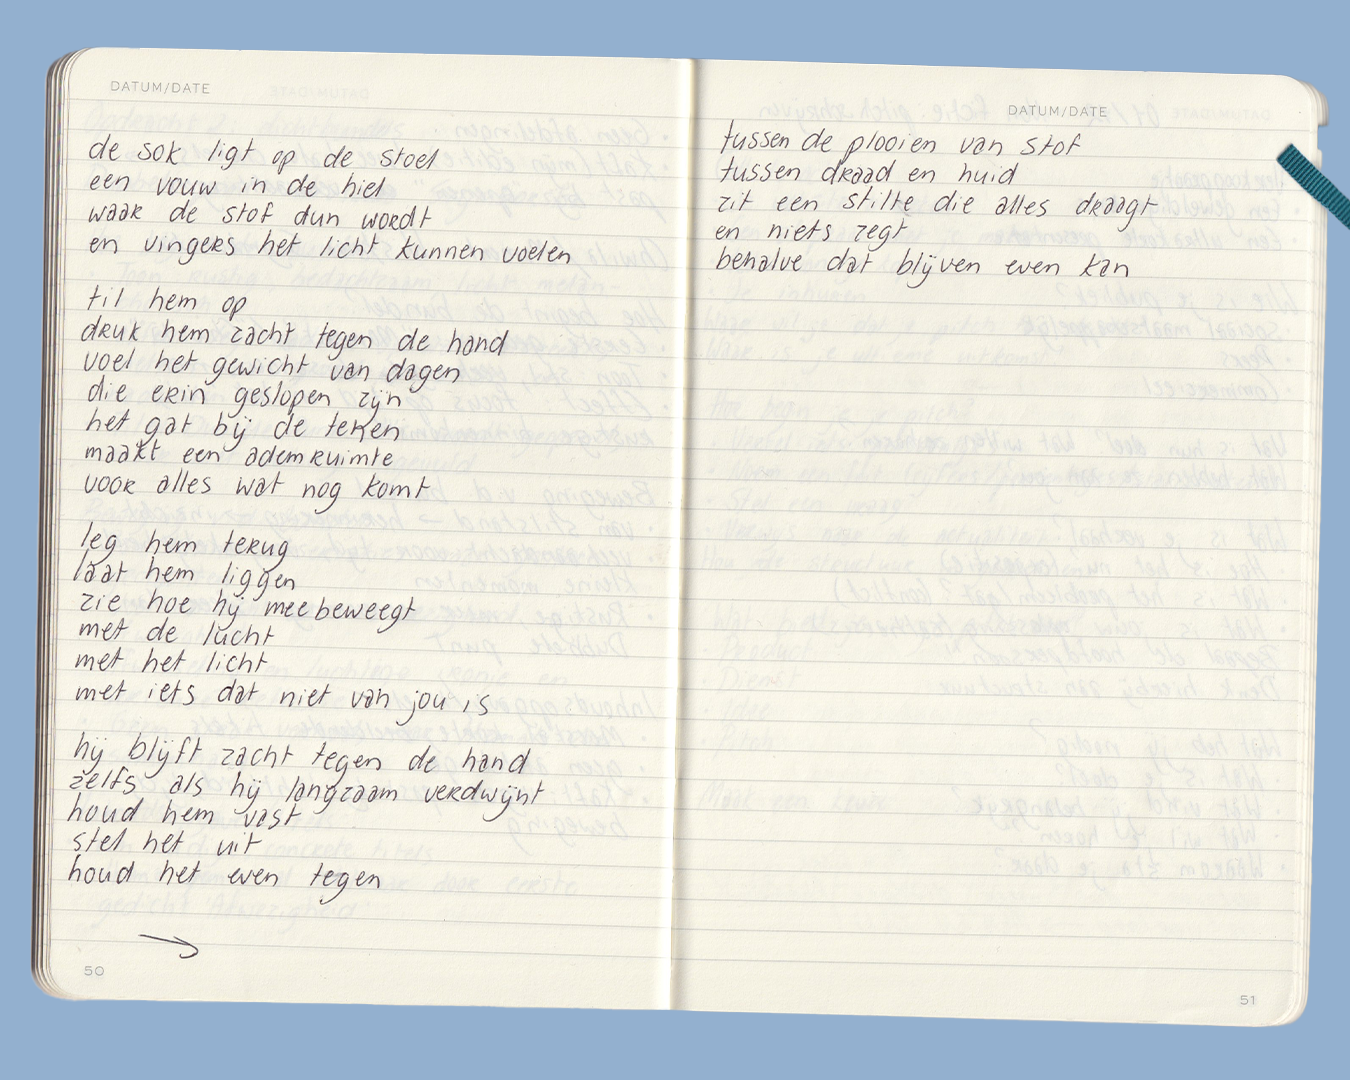 DATUM/DATE
de sok ligt op de stoel
een vouw in de hiel
waar de stof dun wordt
en vingers het licht kunnen voelen
til hem op
druk hem zacht tegen de hand
voel het gewicht van dagen
die erin geslopen zijn
het gat bij de tenen
maakt een ademruimte
voor alles wat nog komt
leg hem terug
laat hem liggen
zie hoe hij meebeweegt
met de lucht
met het licht
met iets dat niet van jou is
hij blijft zacht tegen de hand
zelfs als hij langzaam verdwijnt
houd hem vast
stel het uit
houd het even tegen
50
DATUM/DATE
tussen de plooien van stof
tussen draad en huid
zit een stilte die alles draagt
en niets zegt
behalve dat blijven even kan
51